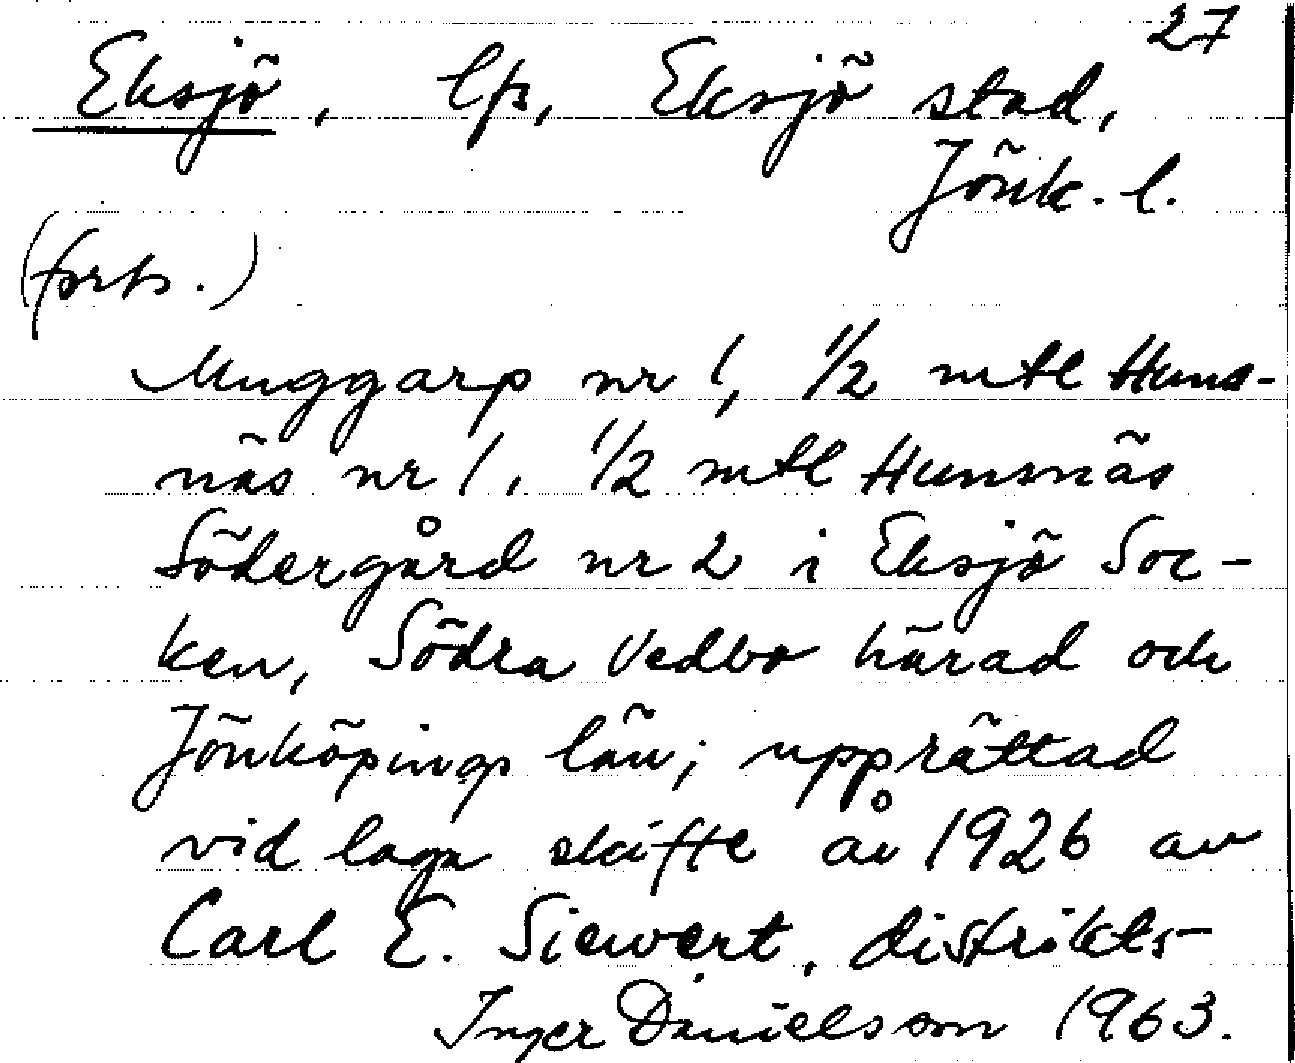 27
Eksjö, lp, Eksjö stad,
Jönk. l.
(forts.)
Muggarp nr 1, 1/2 mtl Huns-
näs nr 1, 1/2 mtl Hunsnäs
Södergård nr 2 i Eksjö Soc-
ken, Södra Vedbo härad och
Jönköpings län; upprättad
vid laga skifte år 1926 av
Carl E. Siewert, distrikts-
Inger Danielsson 1963.